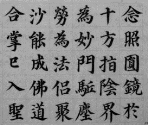 念照圓鏡於
十方指陰界
為妙門駈塵
勞為法侶聚
沙能成佛道
合掌已入聖